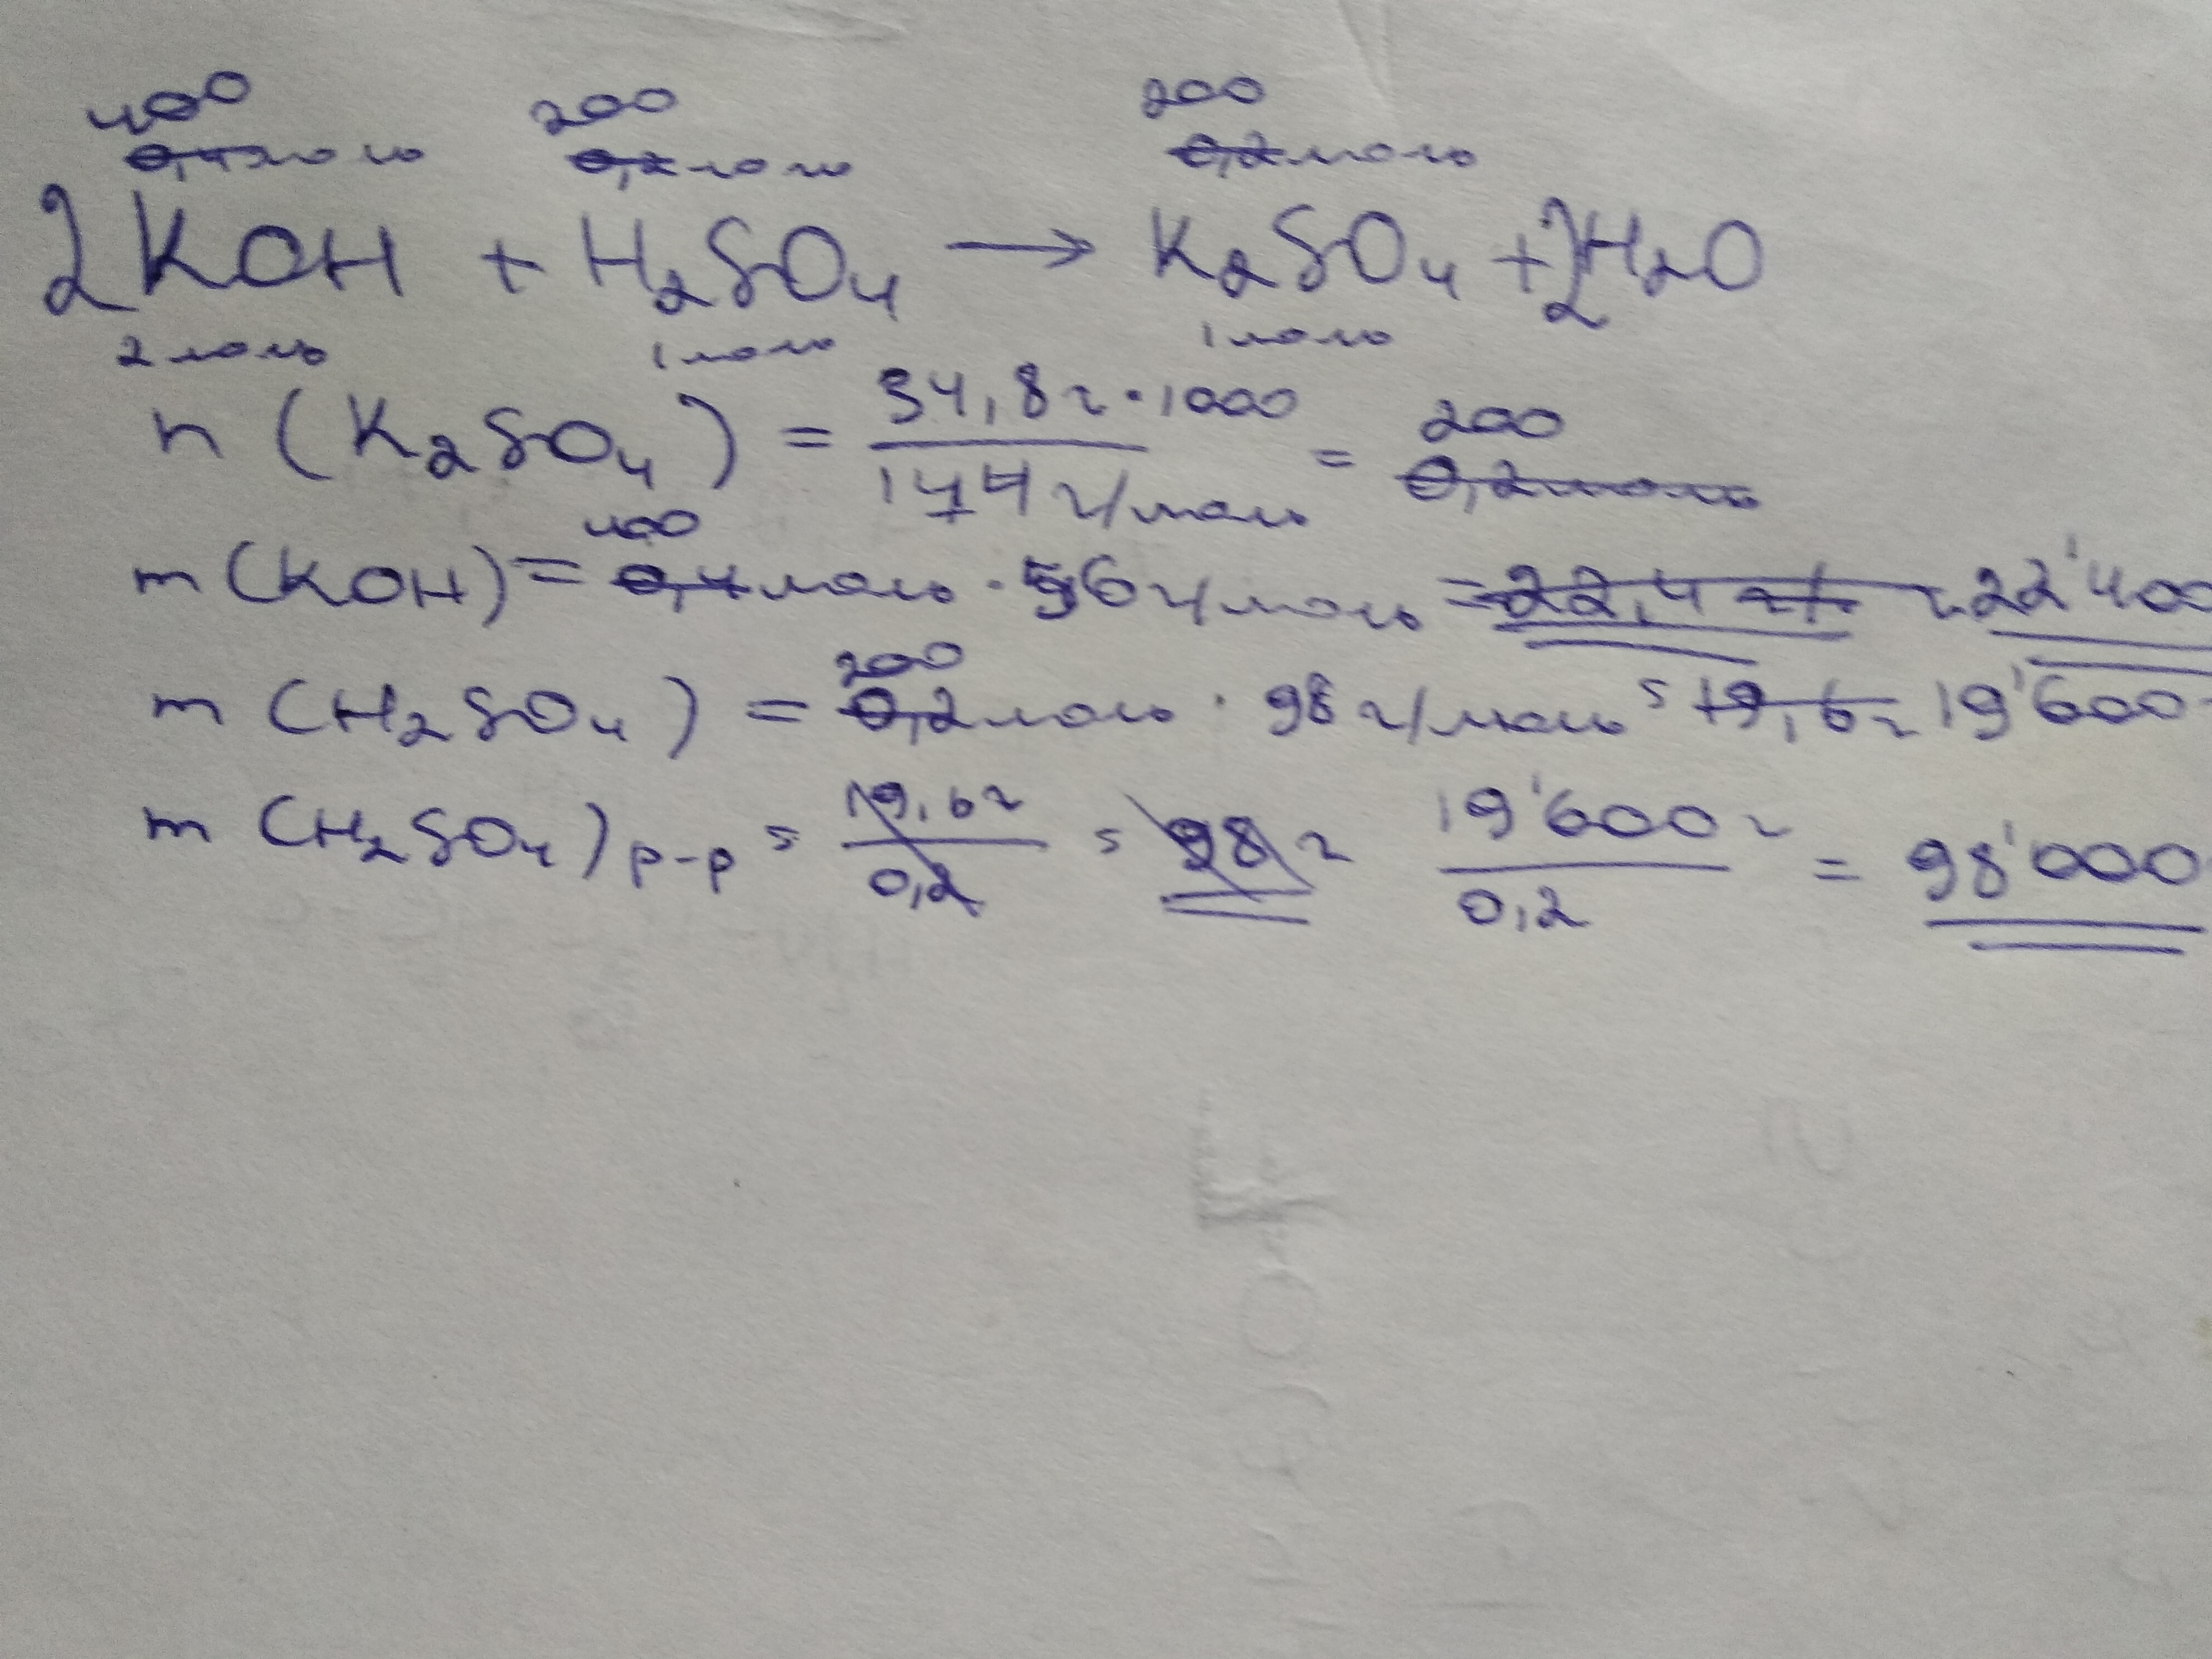 400 200 200
0,4моль 0,2моль 0,2моль
2KOH + H2SO4 → K2SO4 + 2H2O
2 моль 1 моль 1 моль
n (K2SO4) = 34,8г · 1000 / 174 г/моль = 200 0,2моль
m (KOH) = 400 0,4моль · 56 г/моль = 22,4 г 22'400
m (H2SO4) = 200 0,2моль · 98 г/моль = 19,6г 19'600
m (H2SO4)р-р = 19,6г / 0,2 = 98 г 19'600г / 0,2 = 98'000